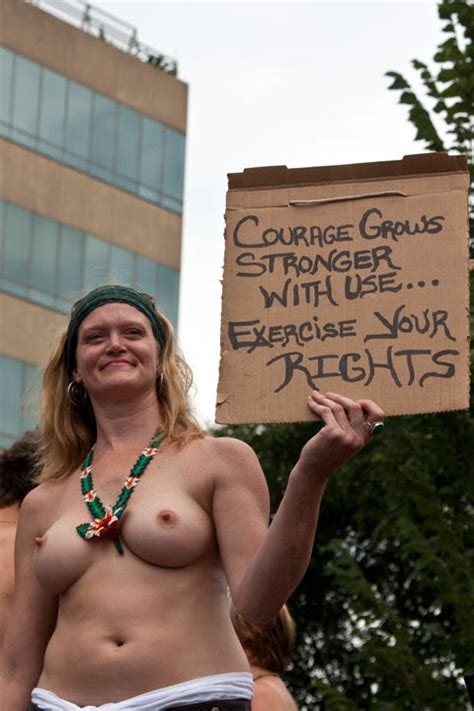 COURAGE GROWS
STRONGER
WITH USE...
EXERCISE YOUR
RIGHTS